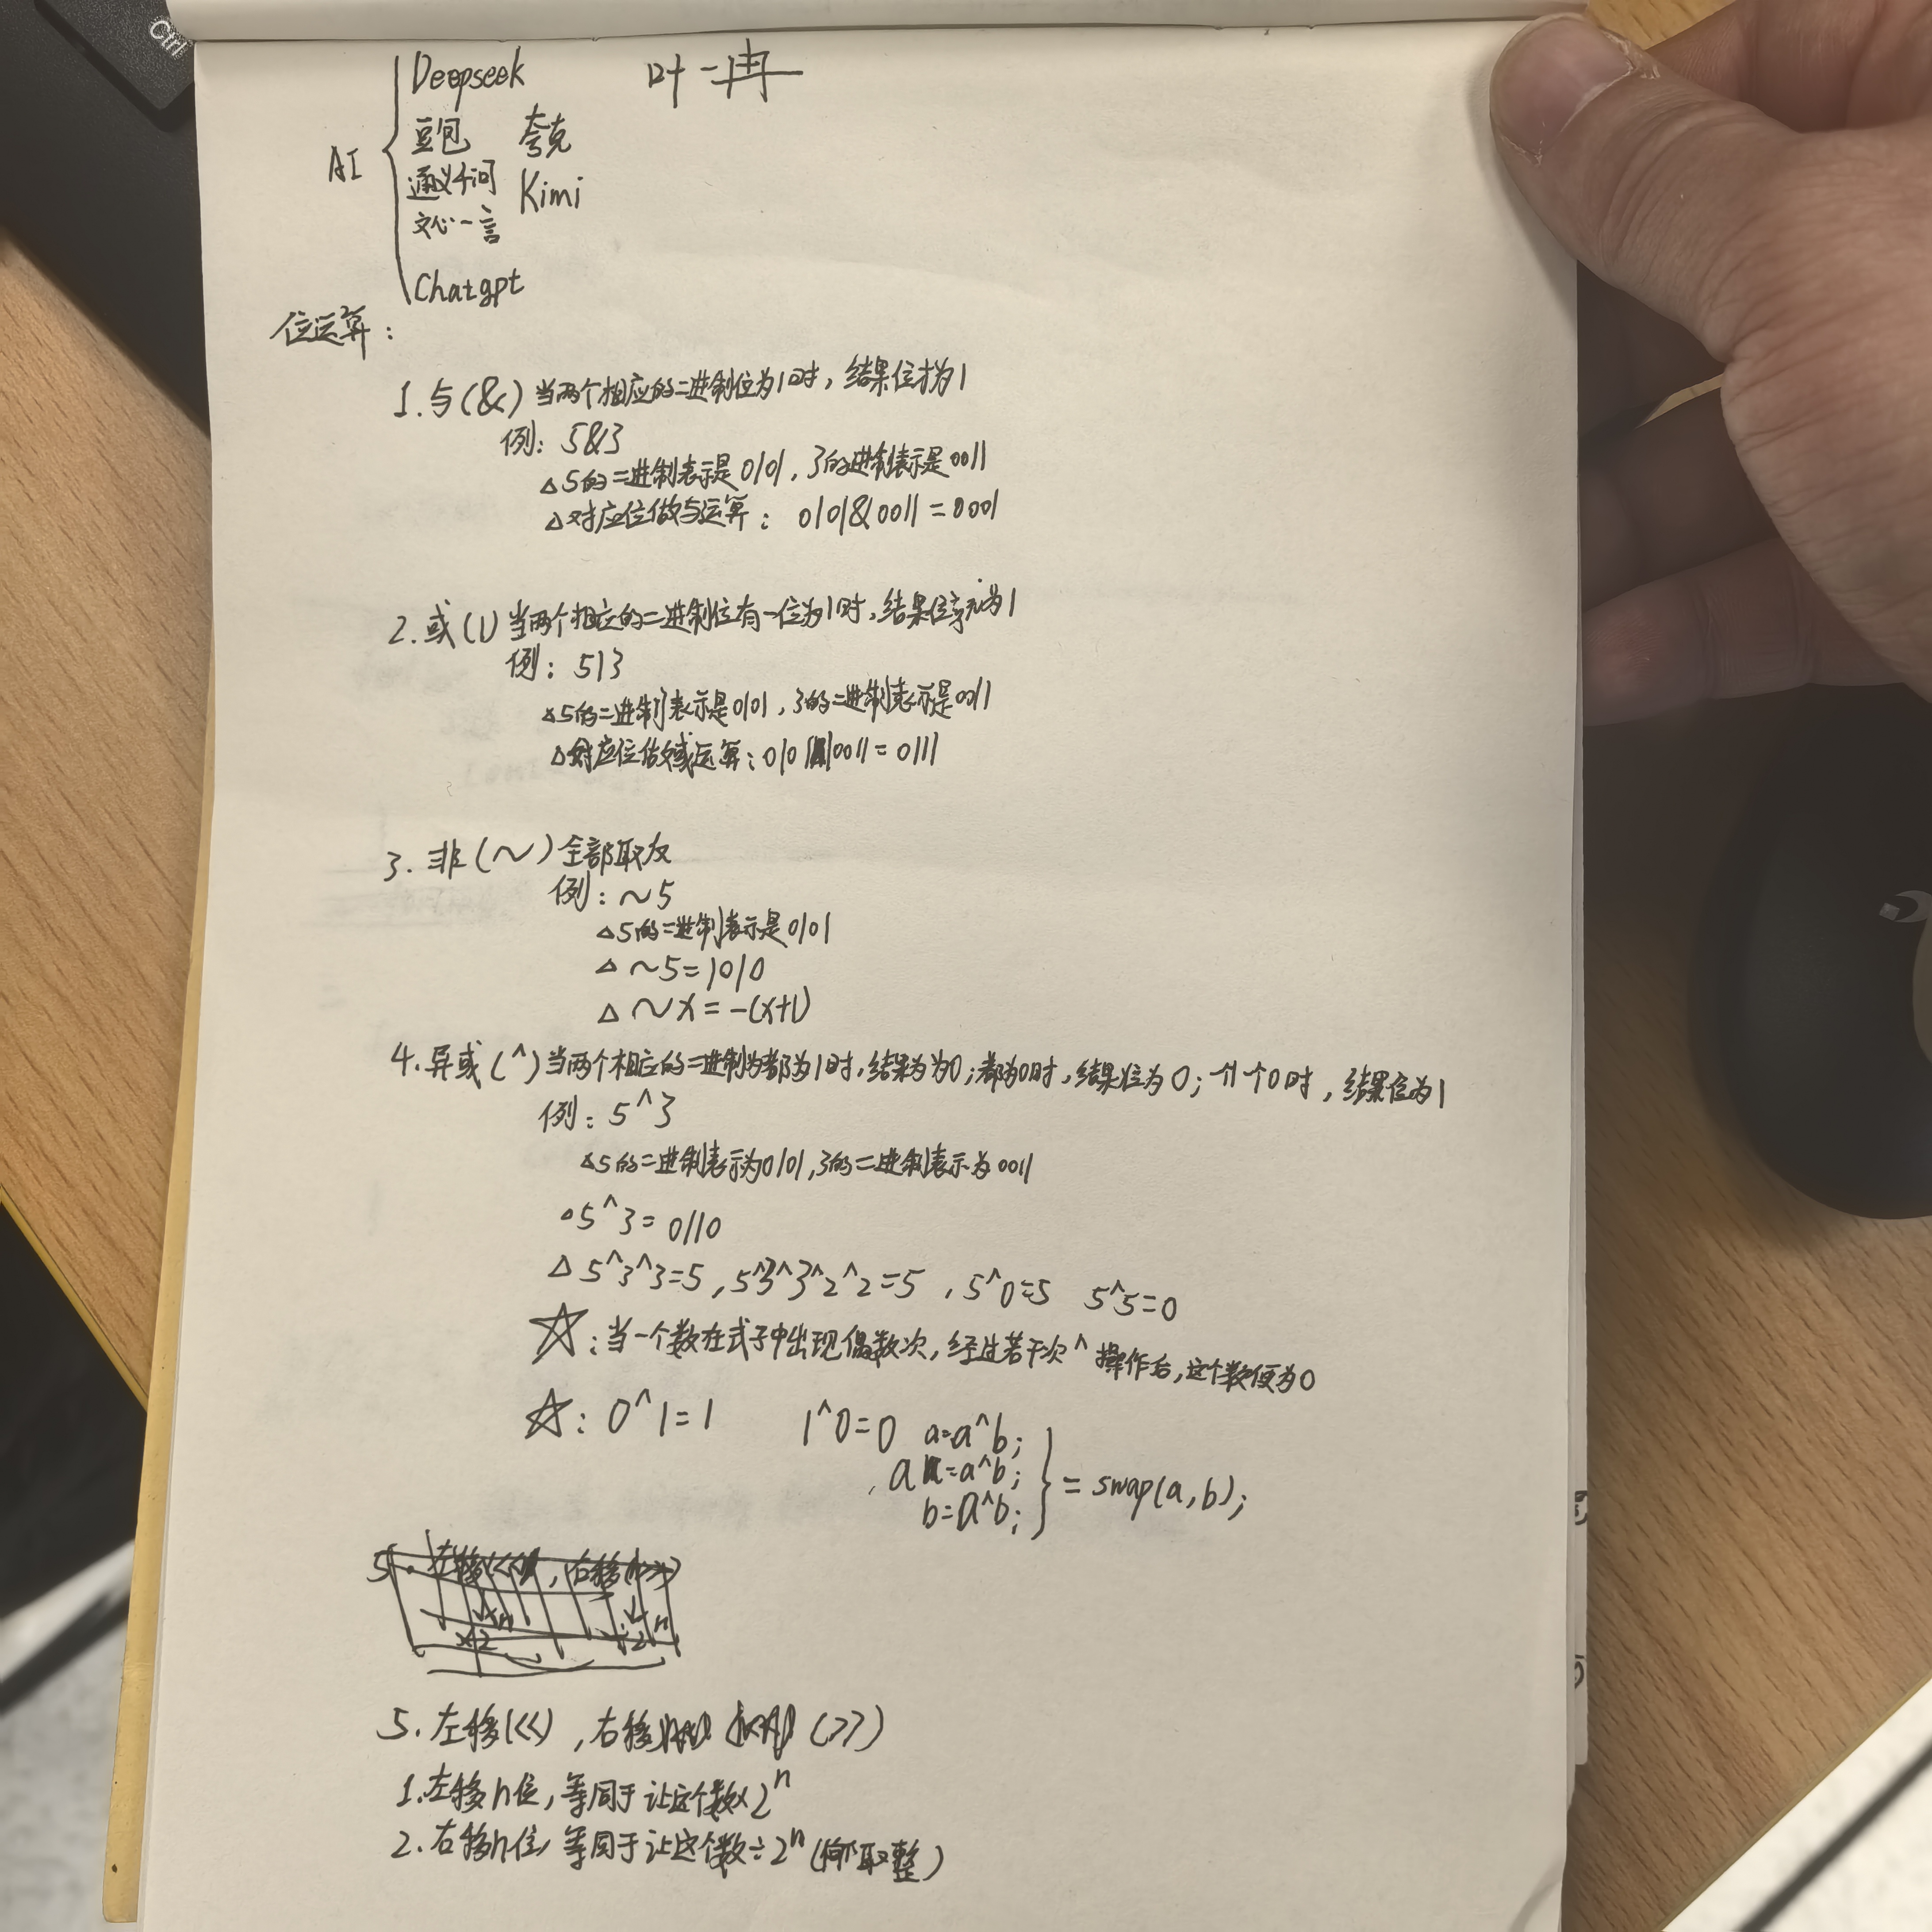 Ctrl
Deepseek 叶一冉
豆包 夸克
AI
通义千问 Kimi
文心一言
Chatgpt
位运算:
1.与(&)当两个相应的二进制位为1时,结果位才为1
例: 5&3
△5的二进制表示是0101,3的进制表示是0011
△对应位做与运算: 0101&0011=0001
2.或(|)当两个相应的二进制位有一位为1时,结果位就为1
例: 5|3
△5的二进制表示是0101,3的二进制表示是0011
△对应位做或运算:0101|0011=0111
3.非(~)全部取反
例:~5
△5的二进制表示是0101
△ ~5=1010
△ ~x=-(x+1)
4.异或(^)当两个相应的二进制为都为1时,结果为为0;都为0时,结果位为0;一个1一个0时,结果位为1
例:5^3
△5的二进制表示为0101,3的二进制表示为0011
△5^3=0110
△ 5^3^3=5,5^3^3^2^2=5,5^0=5 5^5=0
☆:当一个数在式子中出现偶数次,经过若干次^操作后,这个数便为0
☆: 0^1=1 1^0=0 a=a^b;
a=a^b; } = swap(a,b);
b=a^b;
5.左移(<<),右移(>>)
1.左移n位,等同于让这个数×2^n
2.右移n位,等同于让这个数÷2^n(向下取整)